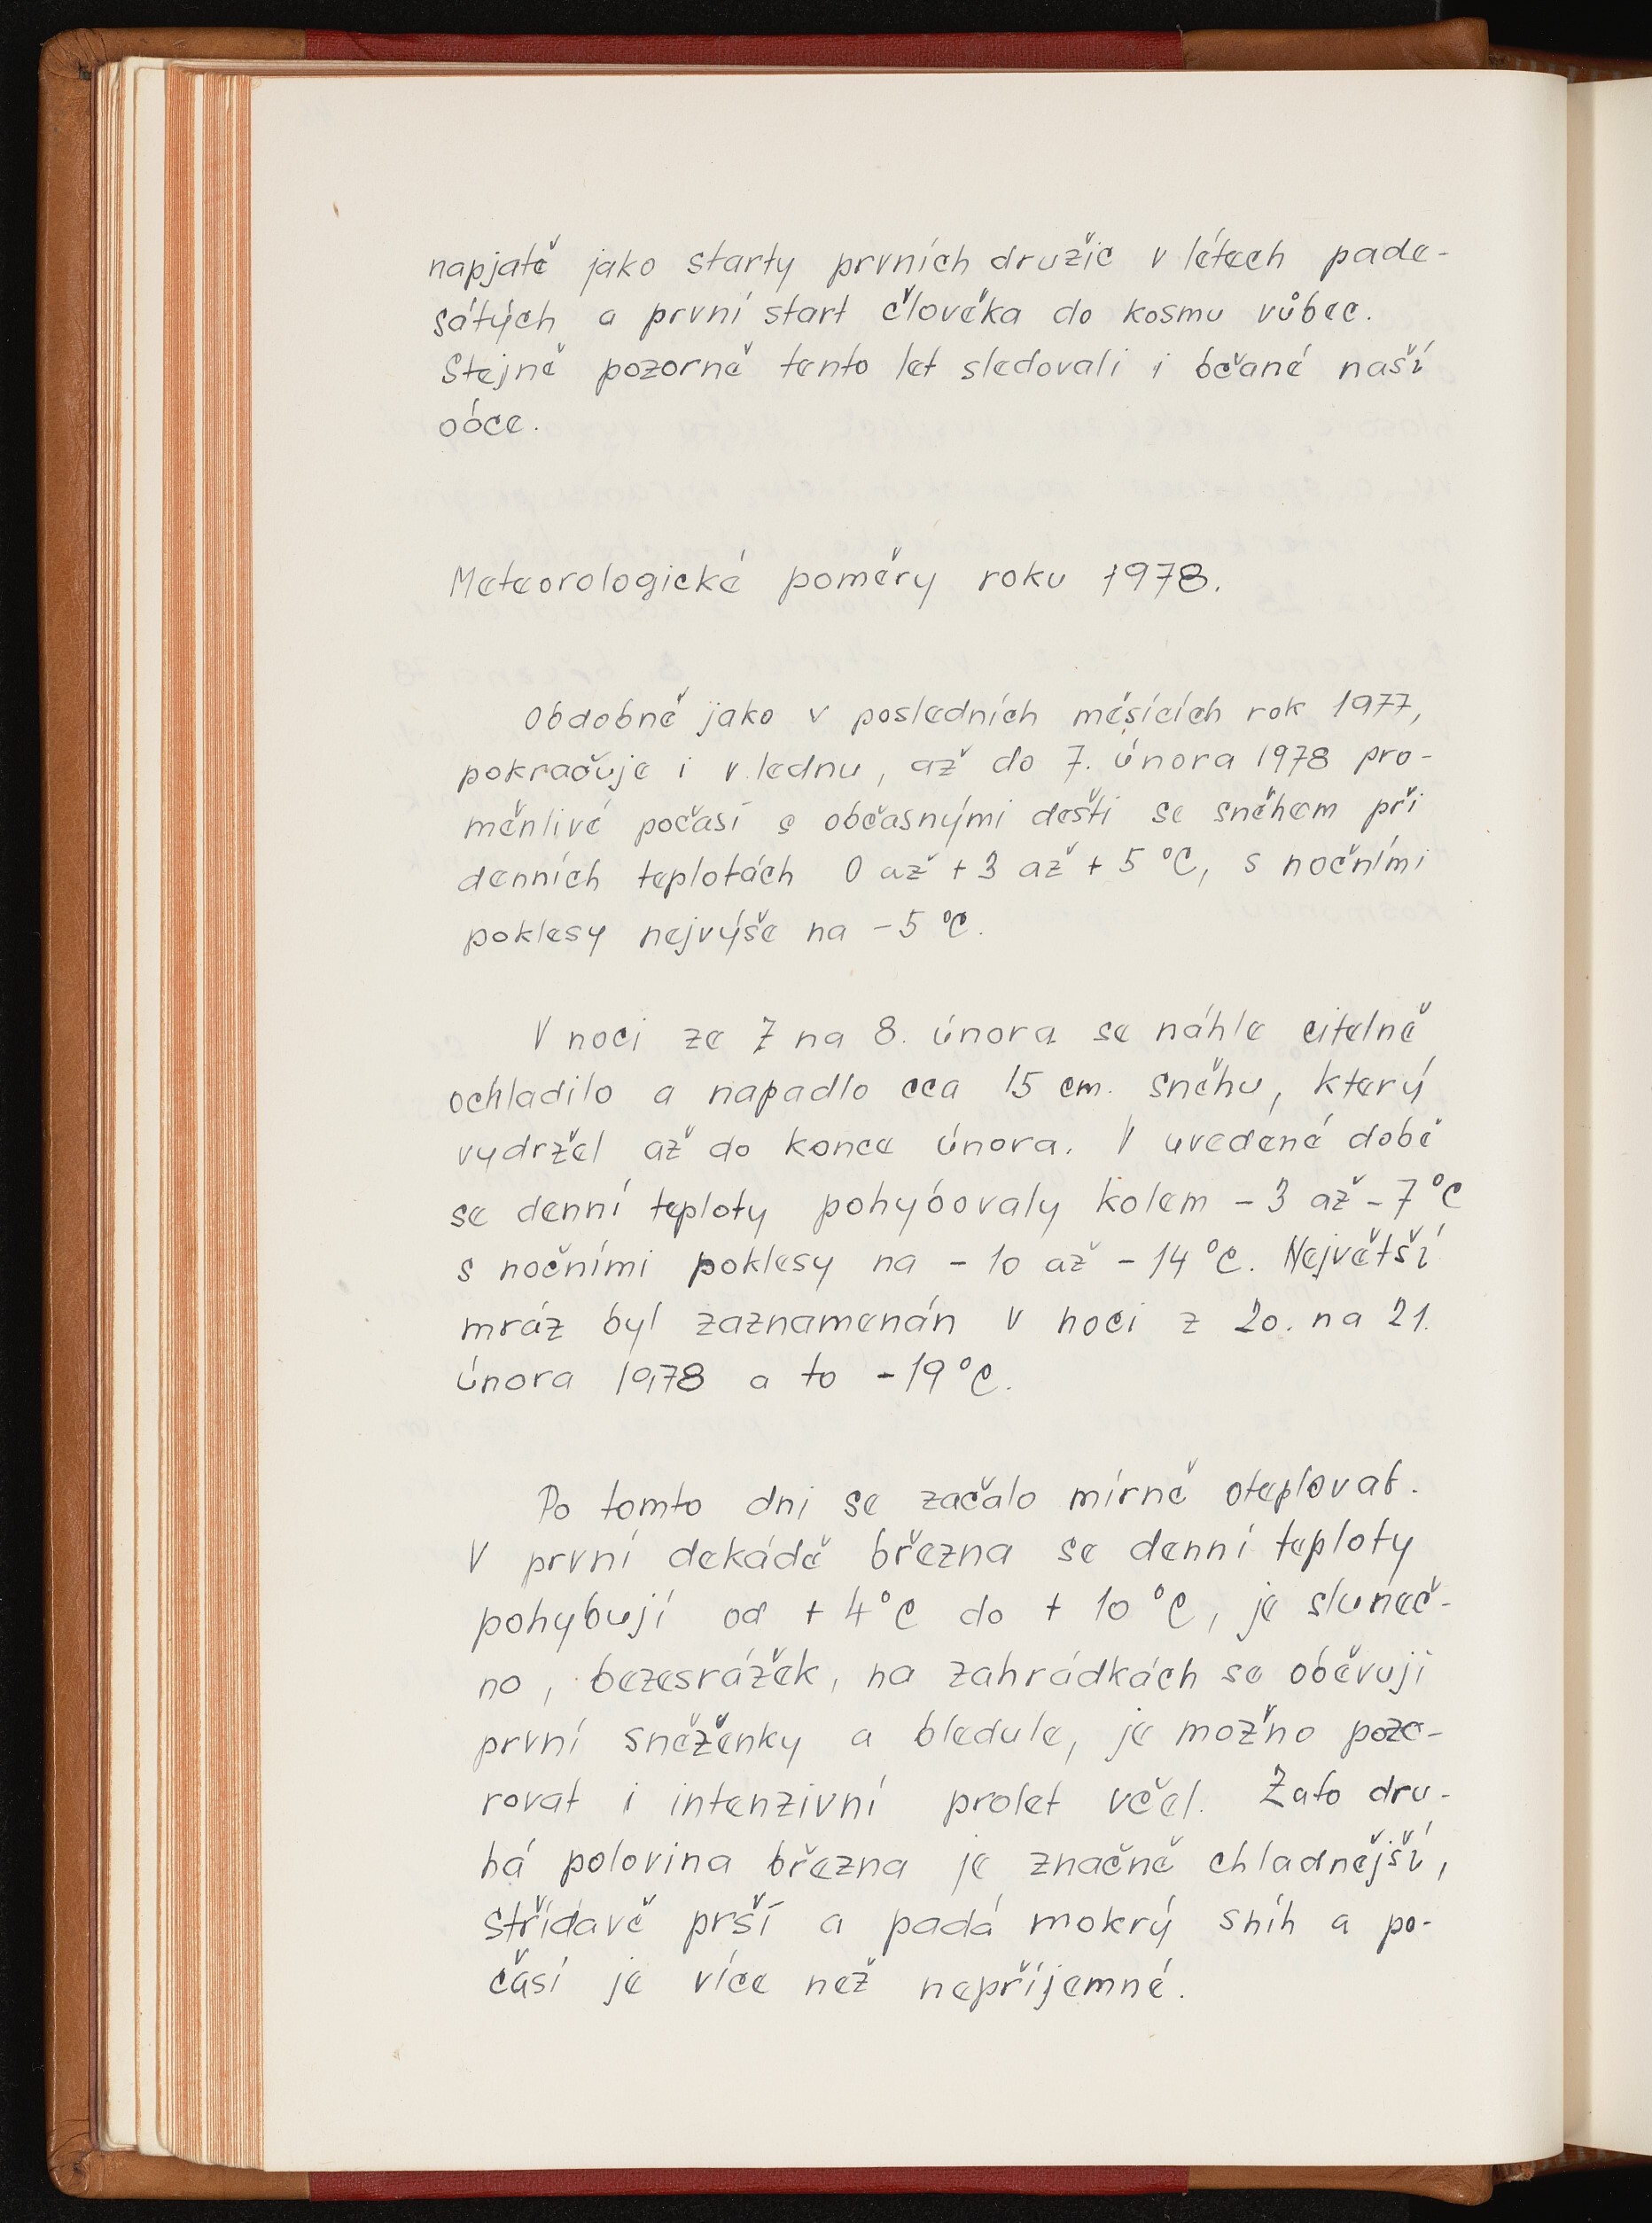 napjatě jako starty prvních družic v létech pade-
sátých a první start člověka do kosmu vůbec.
Stejně pozorně tento let sledovali i bčané naší
obce.
Meteorologické poměry roku 1978.
Obdobně jako v posledních měsících rok 1977,
pokračuje i v lednu, až do 7. února 1978 pro-
měnlivé počasí s občasnými dešti se sněhem při
denních teplotách 0 až +3 až +5 °C, s nočními
poklesy nejvýše na -5 °C.
V noci ze 7 na 8. února se náhle citelně
ochladilo a napadlo cca 15 cm. sněhu, který
vydržel až do konce února. V uvedené době
se denní teploty pohybovaly kolem -3 až -7 °C
s nočními poklesy na -10 až -14 °C. Největší
mráz byl zaznamenán v noci z 20. na 21.
února 1978 a to -19 °C.
Po tomto dni se začalo mírně oteplovat.
V první dekádě března se denní teploty
pohybují od +4 °C do +10 °C, je sluneč-
no, bezesrážek, na zahrádkách se oběvují
první sněženky a bledule, je možno pozo-
rovat i intenzivní prolet včel. Zato dru-
há polovina března je značně chladnější,
střídavě prší a padá mokrý sníh a po-
časí je více než nepříjemné.